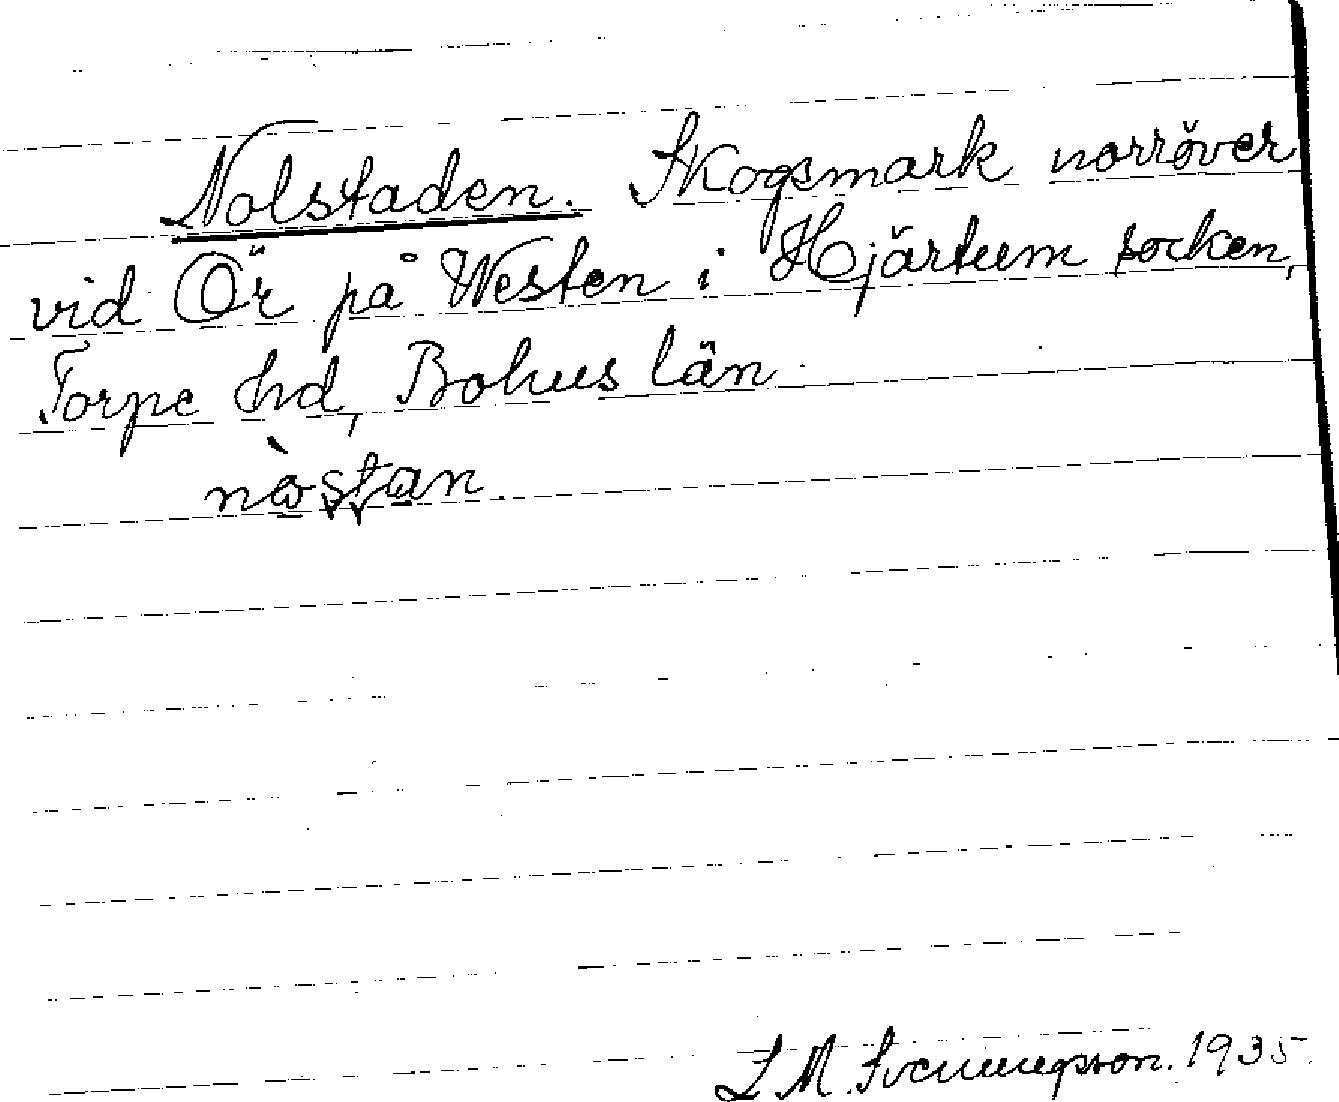 Nolstaden. Skogsmark norröver
vid Ör på Westen i Hjärtum socken,
Torpe hd, Bohus län
L M. Svenungson. 1935.